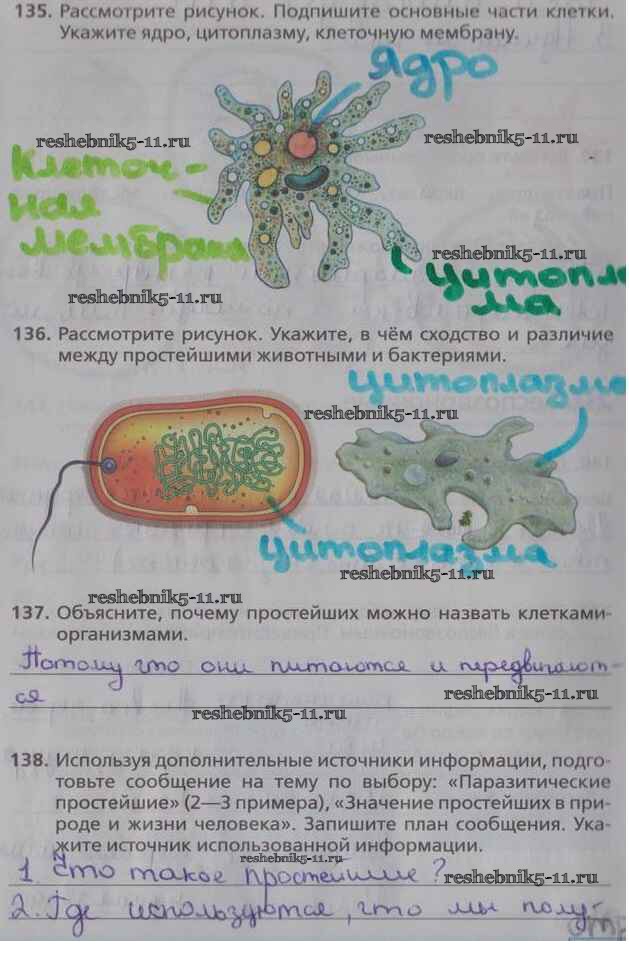 135. Рассмотрите рисунок. Подпишите основные части клетки.
Укажите ядро, цитоплазму, клеточную мембрану.
Ядро
reshebnik5-11.ru
reshebnik5-11.ru
Клеточ-
ная
мембрана
reshebnik5-11.ru
цитопла
ма
reshebnik5-11.ru
136. Рассмотрите рисунок. Укажите, в чём сходство и различие
между простейшими животными и бактериями.
цитоплазма
reshebnik5-11.ru
цитоплазма
reshebnik5-11.ru
reshebnik5-11.ru
137. Объясните, почему простейших можно назвать клетками-
организмами.
Потому что они питаются и передвигают-
ся
reshebnik5-11.ru
reshebnik5-11.ru
138. Используя дополнительные источники информации, подго-
товьте сообщение на тему по выбору: «Паразитические
простейшие» (2—3 примера), «Значение простейших в при-
роде и жизни человека». Запишите план сообщения. Ука-
жите источник использованной информации.
reshebnik5-11.ru
1. Что такое простейшие?
reshebnik5-11.ru
2. Где используются, что мы полу-